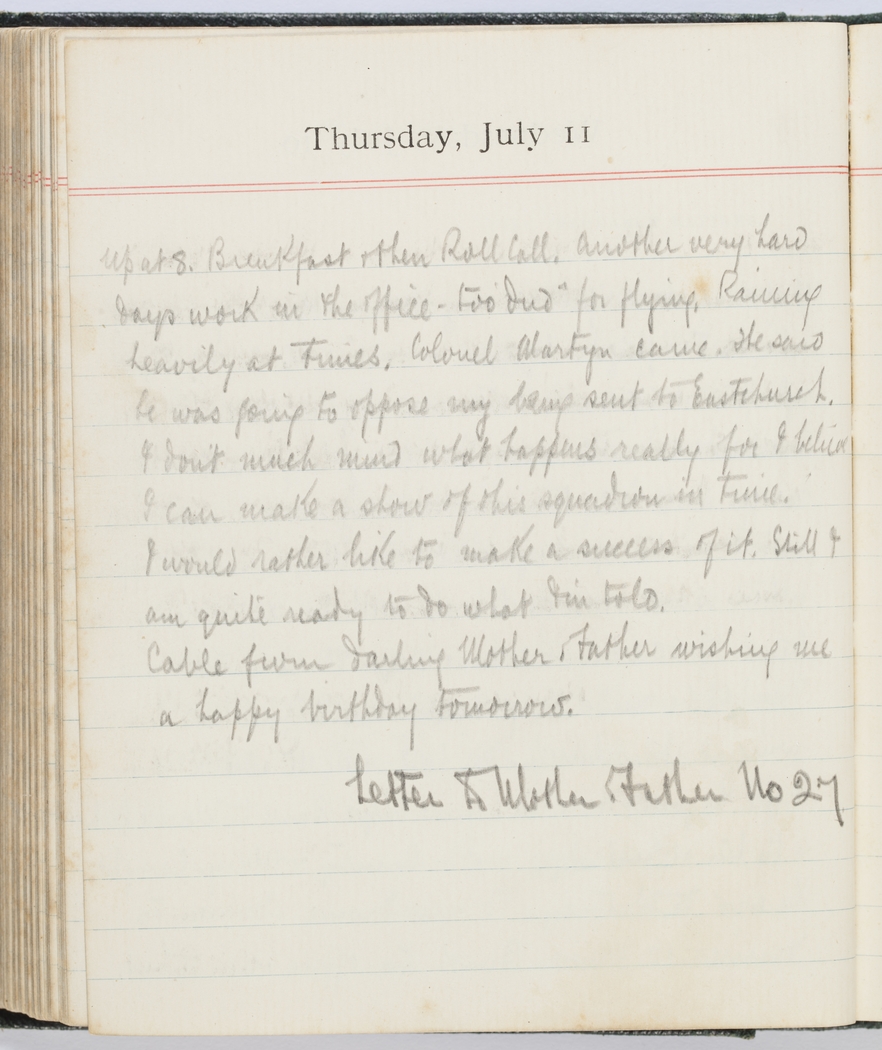 Thursday, July 11
Up at 8. Breakfast & then Roll Call. Another very hard
days work in the office - too "dud" for flying. Raining
heavily at times. Colonel Martyn came. He said
he was going to oppose my being sent to Eastchurch.
I don't much mind what happens really for I believe
I can make a show of this squadron in time.
I would rather like to make a success of it. Still I
am quite ready to do what I'm told.
Cable from darling Mother & Father wishing me
a happy birthday tomorrow.
Letter to Mother & Father No 27